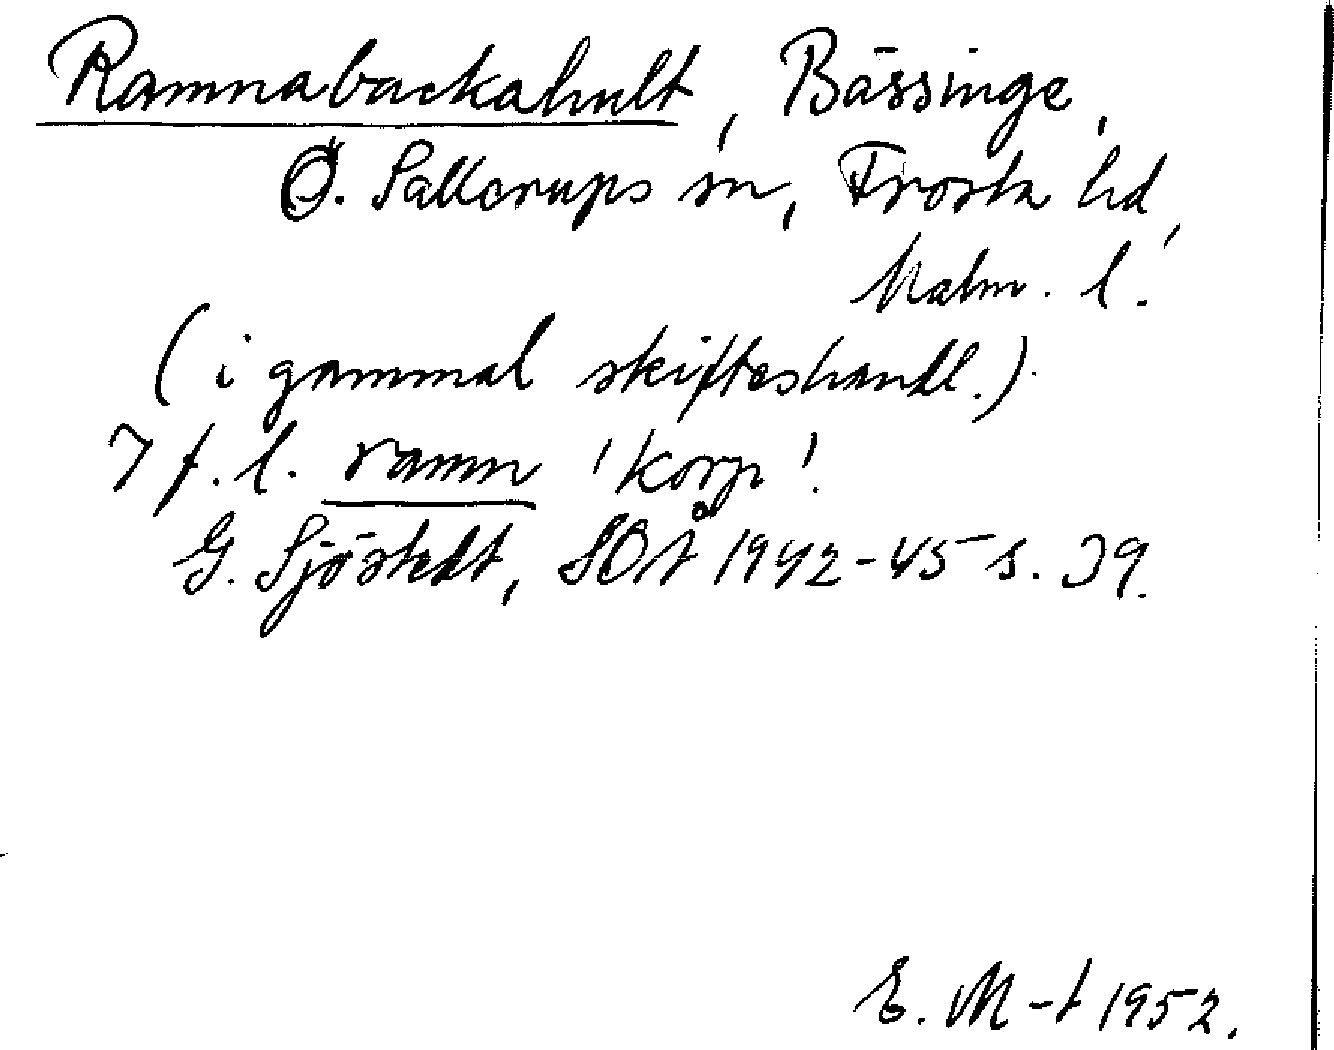 Ramnabackahult, Bässinge,
Ö. Sallerups sn, Frosta hd,
Malm. l.
(i gammal skifteshandl.)
I f. l. ramn 'korp'.
G. Sjöstedt, SOÅ 1942-45 s. 39.
E. M-t 1952.